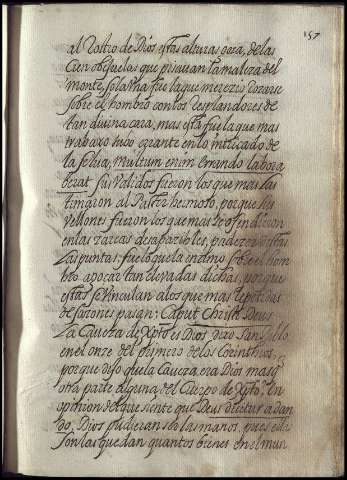 157
al Rostro de Dios estas alturas oveja, de las
Cien obejuelas que pisauan la maleza del
monte, sola una fue la que merezio
sobre el hombro con los resplandores de
tan divina cara, mas esta fue la que mas
trabaxo hizo errante en lo intricado de
la selva, multum enim errando labora
berat sus validos fueron los que mas las
timaron al Pastor hermoso, porque sus
vellones fueron los que mas le ofendieron
en las zarzas desapazibles, padezer estas
las puntas, fue lo que la endono sobre el hom
bro a gozar tan elevadas dichas, porque
estas se vinculan a los que mas repetidas
desazones pasan: Caput Christi Deus
La Caveza de Xpto es Dios dixo San Pablo
en el onze del primero de los Corinthios,
porque dijo que la Caveza era Dios mas q
otra parte alguna del Cuerpo de Xpto, En
opinion del que siente que Deus dicitur a dan
do, Dios pudieran ser las manos, pues estas
son las que dan quantos bienes en el mun